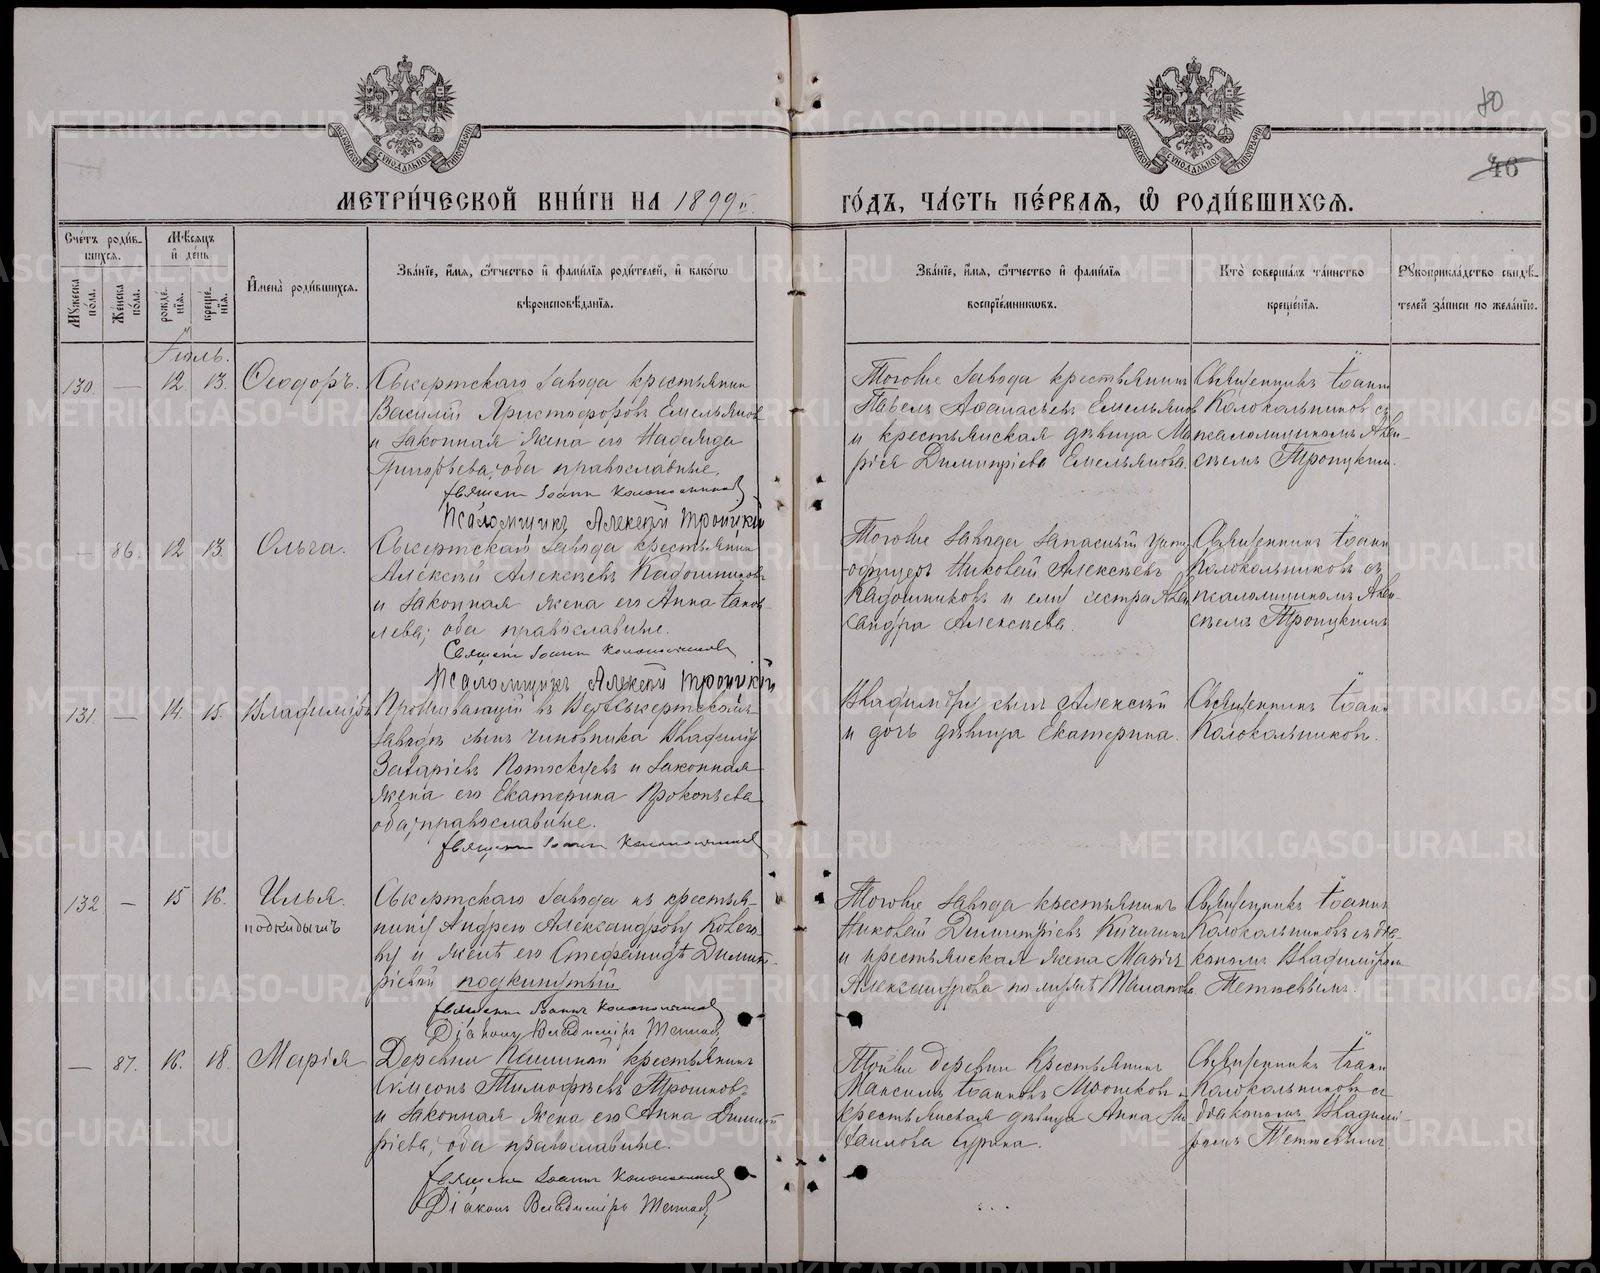 МЕТРИ́ЧЕСКОЙ КНИ́ГИ НА 1899 г.
ГО́ДЪ, ЧА́СТЬ ПЕ́РВАѦ, Ѡ҆ РОДИ́ВШИХСѦ.
70
46
Сче́тъ роди́в-
шихсѧ.
Мѣ́сѧцъ
и҆ де́нь
Мꙋ́жеска по́ла.
Же́нска по́ла.
рожде́нїѧ.
креще́нїѧ.
И҆мена̀ роди́вшихсѧ.
Зва́нїе, и҆́мѧ, ѻ҆́тчество и҆ фами́лїѧ роди́телей, и҆ како́гѡ
вѣроисповѣ́данїѧ.
Зва́нїе, и҆́мѧ, ѻ҆́тчество и҆ фами́лїѧ
воспрїе́мникѡвъ.
Кто̀ соверша́лъ та́инство
креще́нїѧ.
Рꙋкоприкла́дство свидѣ́-
телей за́писи по жела́нїю.
Іюль.
130 — 12 13. Ѳеодоръ.
Сысертскаго завода крестьянинъ
Василій Христофоровъ Емельяновъ
и законная жена его Надежда
Григорьева, оба православные.
Священ Іоаннъ Колокольниковъ
Псаломщикъ Алексѣй Троицкій
Тогоже завода крестьянинъ
Павелъ Аѳанасьевъ Емельяновъ
и крестьянская дѣвица Ма
рія Димитріева Емельянова.
Священникъ Іоаннъ
Колокольниковъ съ
псаломщикомъ Алек-
сѣемъ Троицкимъ.
— 86. 12 13. Ольга.
Сысертскаго завода крестьянинъ
Алексѣй Алексѣевъ Кадошниковъ
и законная жена его Анна Іаков-
лева; оба православные.
Священ Іоаннъ Колокольниковъ
Псаломщикъ Алексѣй Троицкій
Тогоже завода запасный унтер
офицеръ Николай Алексѣевъ
Кадошниковъ и ему сестра Алек
сандра Алексѣева.
Священникъ Іоаннъ
Колокольниковъ съ
псаломщикомъ Алек-
сѣемъ Троицкимъ
131. — 14. 15. Владиміръ
Проживающій въ Верхсысертскомъ
заводѣ сынъ чиновника Владиміръ
Захаріевъ Потоскуевъ и законная
жена его Екатерина Прокопьева
оба, православные.
Священ Іоаннъ Колокольниковъ
Владиміру сынъ Алексѣй
и дочь дѣвица Екатерина.
Священникъ Іоаннъ
Колокольниковъ.
132 — 15 16. Илья.
подкидышъ
Сысертскаго завода къ крестья-
нину Андрею Александрову
и женѣ его Стефанидѣ Димит-
ріевой подкинутый
Священ Іоаннъ Колокольниковъ
Діаконъ Владиміръ
Тогоже завода крестьянинъ
Николай Димитріевъ Кичигинъ
и крестьянская жена Марія
Александрова по мужѣ
Священникъ Іоаннъ
Колокольниковъ съ діа-
кономъ Владиміромъ
— 87. 16. 18. Марія
Деревни крестьянинъ
Симеонъ Тимоѳеевъ Мрошковъ
и законная жена его Анна Димит
ріева, оба православные.
Священ Іоаннъ Колокольниковъ
Діаконъ Владиміръ
Тойже деревни Крестьянинъ
Максимъ Іоанновъ Мрошковъ и
крестьянская дѣвица Анна Ми
хаилова Сурина.
Священникъ Іоаннъ
Колокольниковъ съ
діакономъ Владимі-
ромъ
METRIKI.GASO-URAL.RU